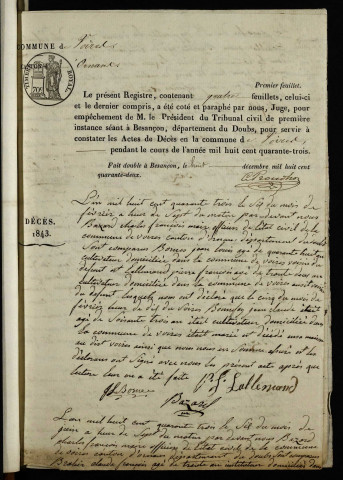 COMMUNE de Voires
Ornans
Premier feuillet.
Le présent Registre, contenant quatre feuillets, celui-ci
et le dernier compris, a été coté et paraphé par nous, Juge, pour
empêchement de M. le Président du Tribunal civil de première
instance séant à Besançon, département du Doubs, pour servir à
constater les Actes de Décès en la commune de Voires
pendant le cours de l'année mil huit cent quarante-trois.
Fait double à Besançon, le huit décembre mil huit cent
quarante-deux.
DÉCÈS.
1843.
L'an mil huit cent quarante trois le six du mois de
février à heure de sept du matin par devant nous
Bazard charles françois maire officier de l'état civil de la
commune de voires canton d'ornans département du doubs
Sont comparus jean louis agé de quarante huit ans
cultivateur domicilié dans la commune de voires voisin du
défunt et Lallemand pierre françois agé de trente deux ans
cultivateur domicilié dans la commune de voires aussi voisin
du défunt lesquels nous ont déclaré que le cinq du mois de
février heure de du soir jean claude
agé de soixante trois ans était cultivateur domicilié dans
la commune de voires était marié est décédé
au dit voires ainsi que nous nous en sommes assuré et les
déclarans ont signé avec nous le présent acte après que
lecture leur en a été faite
P. F. Lallemand
Bazard
L'an mil huit cent quarante trois le six du mois de
juin à heure de sept du matin par devant nous Bazard
charles françois maire officier de l'état civil de la commune
de voires canton d'ornans département du doubs sont comparus
claude françois agé de trente ans domicilié dans